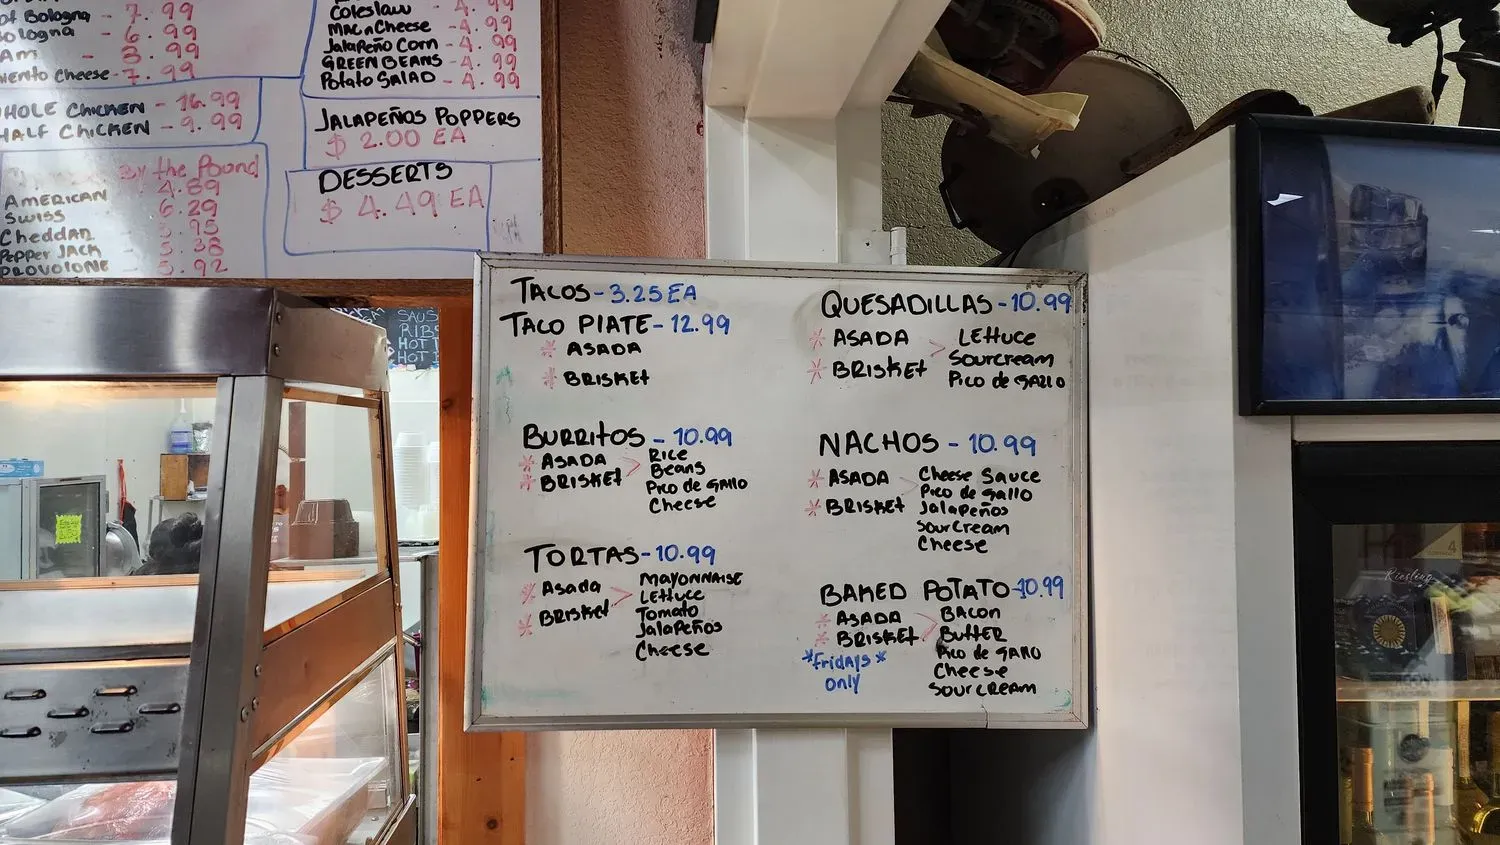 of Bologna - 7.99
Bologna - 6.99
Am - 8.99
Cheese - 7.99
WHOLE CHICKEN - 16.99
HALF CHICKEN - 9.99
By the Pound
4.89
AMERICAN
6.29
SWISS
Cheddar
PEPPER JACK 5.38
PROVOLONE 5.92
Coleslaw - 4.99
Mac n Cheese - 4.99
Jalapeño Corn - 4.99
GREEN BEANS - 4.99
Potato SALAD - 4.99
JALAPEÑOS POPPERS
$ 2.00 EA
DESSERTS
$ 4.49 EA
SAUS
RIBS
HOT
HOT
TACOS - 3.25 EA
TACO PlATE - 12.99
* ASADA
* BRISKEt
BURRItOS - 10.99
* ASADA
* BRISKEt
Rice
Beans
Pico de gallo
Cheese
TORTAS - 10.99
* Asada
* BRISKEt
MAYONNAISE
LEttuce
Tomato
Jalapeños
Cheese
QUESADILLAS - 10.99
* ASADA
* BRISKEt
LEttuce
Sourcream
Pico de gallo
NACHOS - 10.99
* ASADA
* BRISKEt
Cheese Sauce
Pico de gallo
Jalapeños
Sour Cream
Cheese
BAKED POTATO - 10.99
* ASADA
* BRISKEt
*Fridays*
only
BACON
BUttER
Pico de gallo
Cheese
SOUR CREAM
4
Riesling